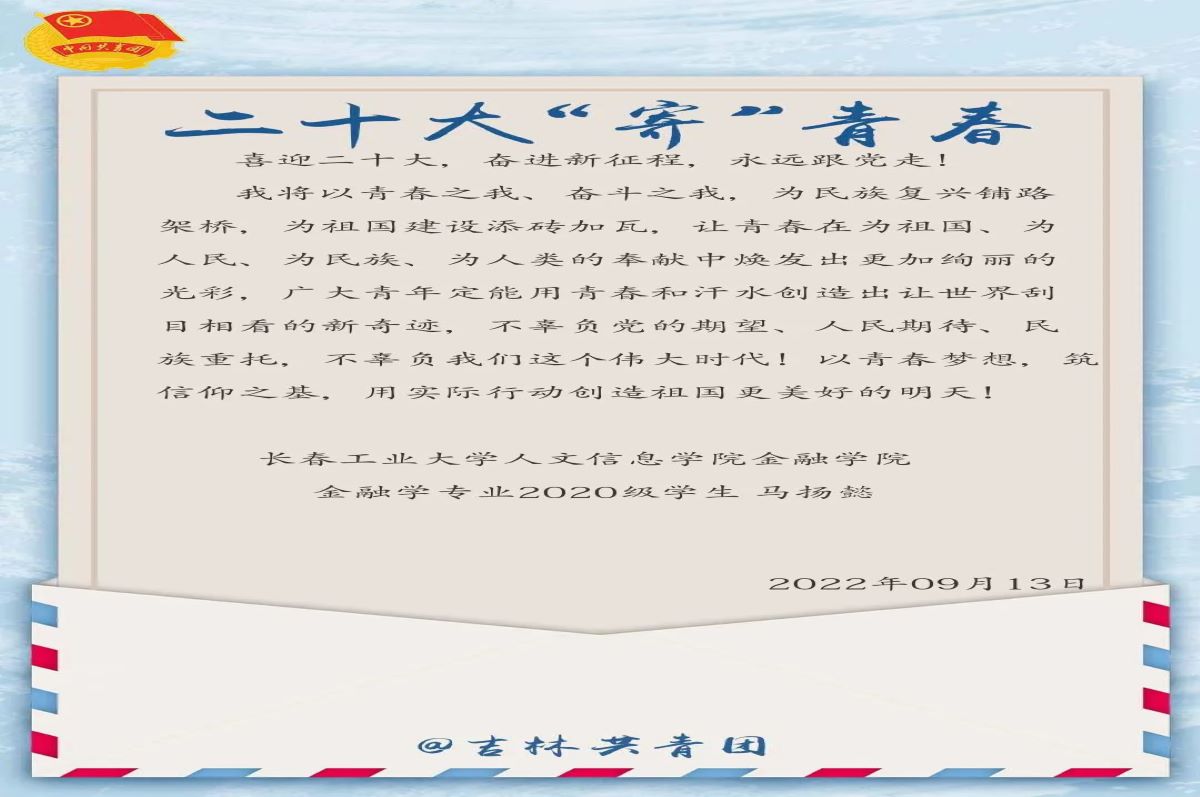 中国共青团
二十大“寄”青春
喜迎二十大，奋进新征程，永远跟党走！
我将以青春之我、奋斗之我，为民族复兴铺路
架桥，为祖国建设添砖加瓦，让青春在为祖国、为
人民、为民族、为人类的奉献中焕发出更加绚丽的
光彩，广大青年定能用青春和汗水创造出让世界刮
目相看的新奇迹，不辜负党的期望、人民期待、民
族重托，不辜负我们这个伟大时代！以青春梦想，筑
信仰之基，用实际行动创造祖国更美好的明天！
长春工业大学人文信息学院金融学院
金融学专业2020级学生 马扬懿
2022年09月13日
@吉林共青团